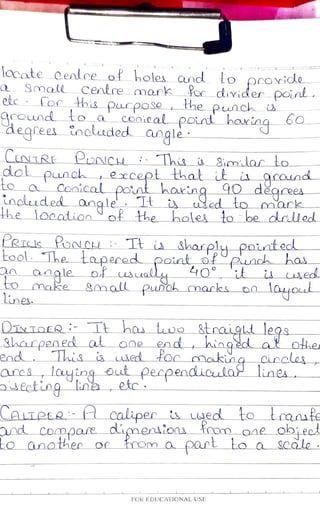 locate centre of holes and to provide
a small centre mark for divider point,
etc. For this purpose, the punch is
ground to a conical point having 60
degrees included angle.
CENTRE PUNCH :- This is similar to
dot punch, except that it is ground
to a conical point having 90 degrees
included angle. It is used to mark
the location of the holes to be drilled.
PRICK PUNCH :- It is sharply pointed
tool. The tapered point of punch has
an angle of usually 40°. it is used
to make small punch marks on layout
lines.
DIVIDER :- It has two straight legs
sharpened at one end, hinged at other
end. This is used for making circles,
arcs, laying out perpendicular lines,
bisecting lines, etc.
CALIPER :- A caliper is used to transfe
and compare dimensions from one object
to another or from a part to a scale.
FOR EDUCATIONAL USE